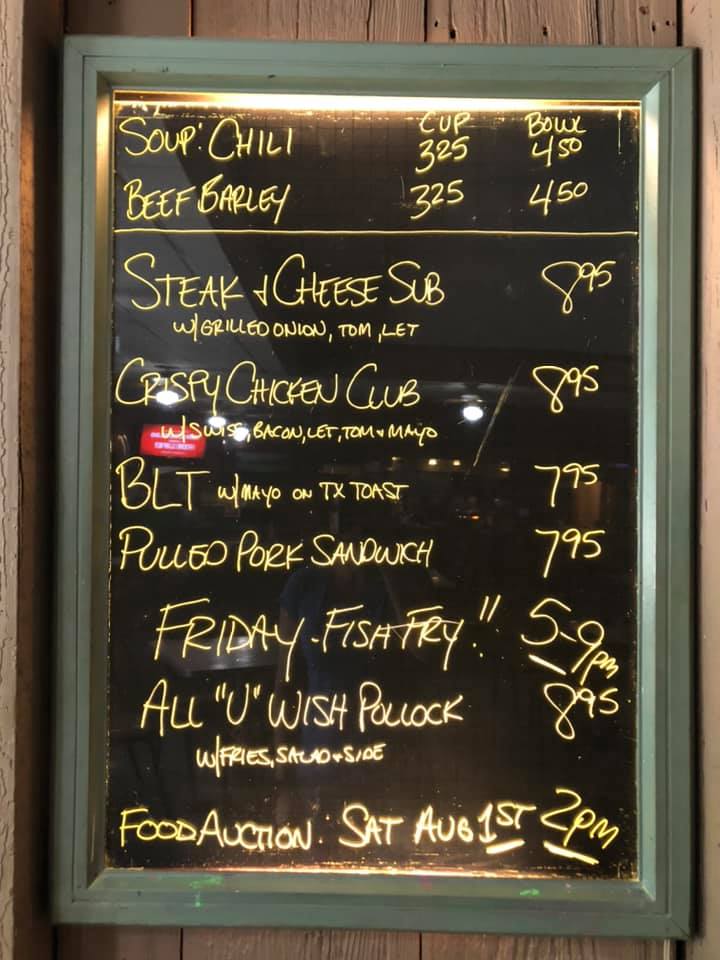 CUP BOWL
SOUP: CHILI 325 450
BEEF BARLEY 325 450
STEAK & CHEESE SUB 895
W/GRILLED ONION, TOM, LET
CRISPY CHICKEN CLUB 895
W/SWISS, BACON, LET, TOM & MAYO
BLT W/MAYO ON TX TOAST 795
PULLED PORK SANDWICH 795
FRIDAY-FISH FRY!! 5-9PM
ALL "U" WISH POLLOCK 895
W/FRIES, SALAD & SIDE
FOOD AUCTION: SAT AUG 1ST 2PM